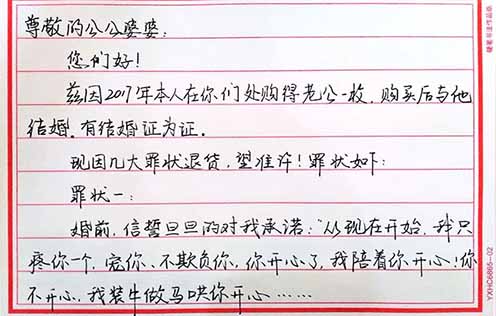 尊敬的公公婆婆：
您们好！
兹因2017年本人在你们处购得老公一枚，购买后与他
结婚。有结婚证为证。
现因几大罪状退货，望准许！罪状如下：
罪状一：
婚前，信誓旦旦的对我承诺："从现在开始，我只
疼你一个，宠你、不欺负你，你开心了，我陪着你开心！你
不开心，我装牛做马哄你开心……
硬笔书法作品纸
YXHC6665-02